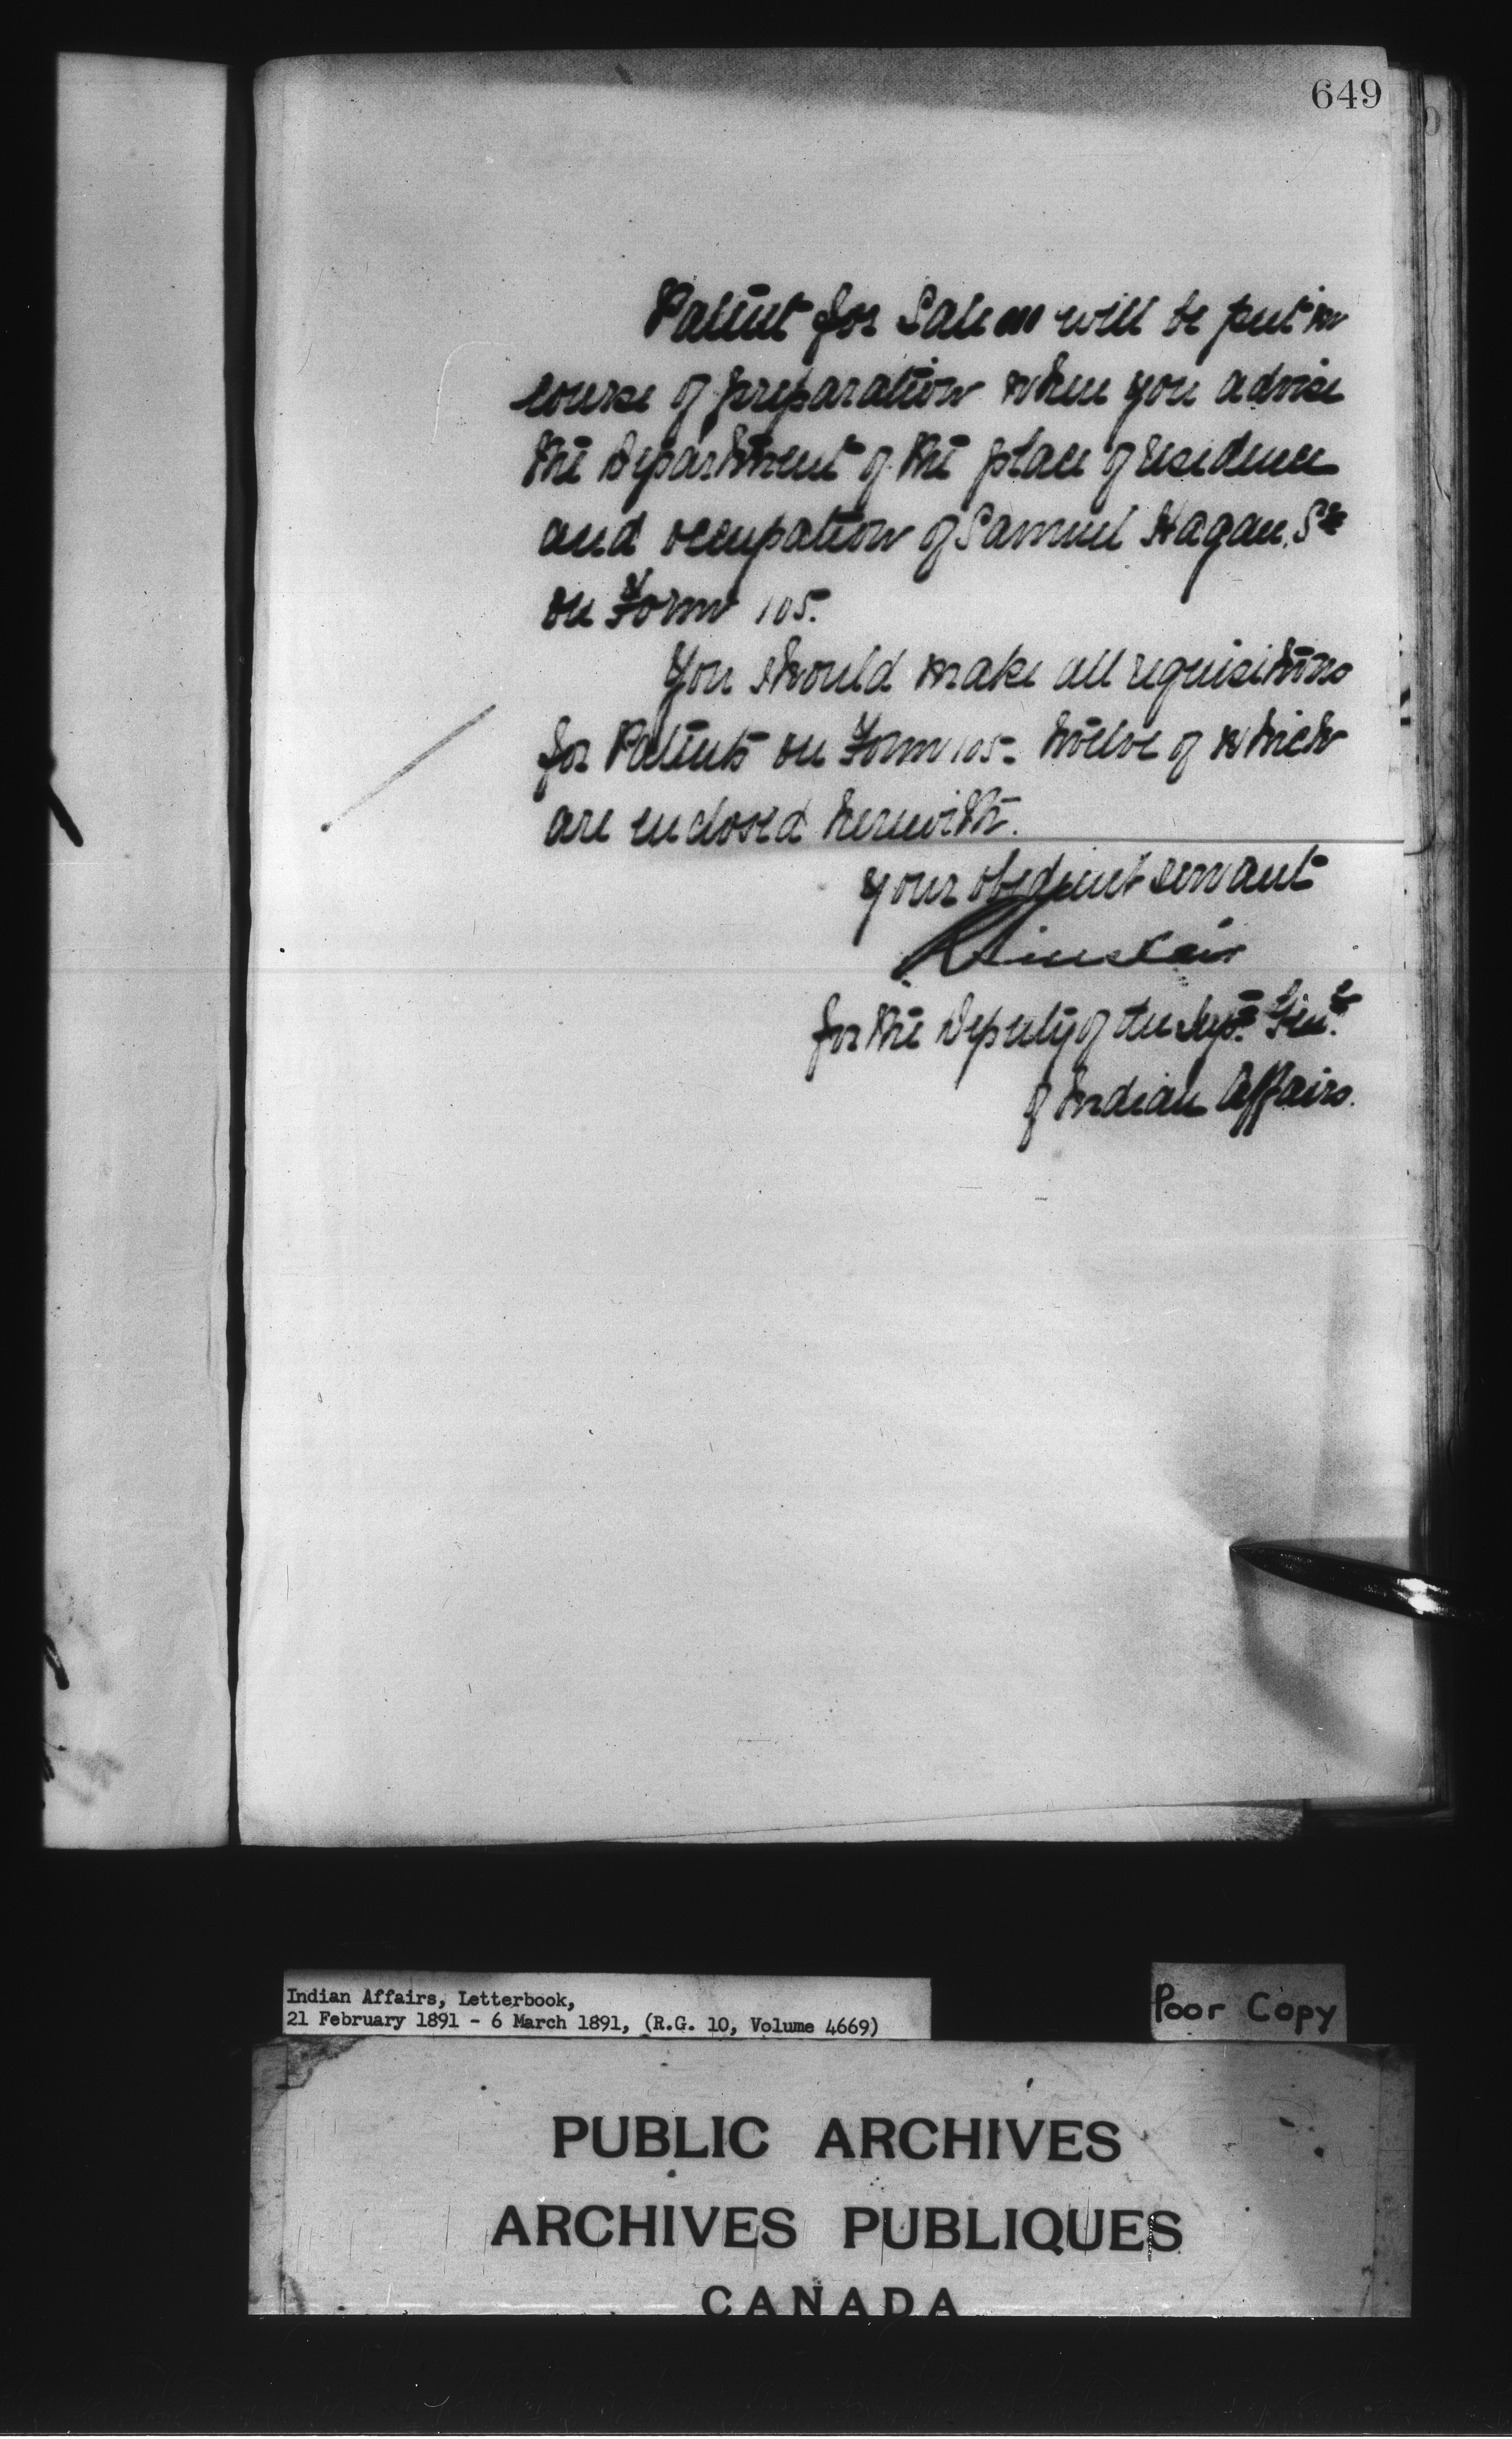 649
Patent for Sale will be put in
course of preparation when you advise
the Department of the place of residence
and occupation of Samuel Hagan, Sr
on Form 105.
You should make all requisitions
for Patents on Form 105 - twelve of which
are enclosed herewith.
your obedient servant
R Sinclair
for the Deputy of the Supt. Genl.
of Indian Affairs.
Indian Affairs, Letterbook,
21 February 1891 - 6 March 1891, (R.G. 10, Volume 4669)
Poor Copy
PUBLIC ARCHIVES
ARCHIVES PUBLIQUES
CANADA